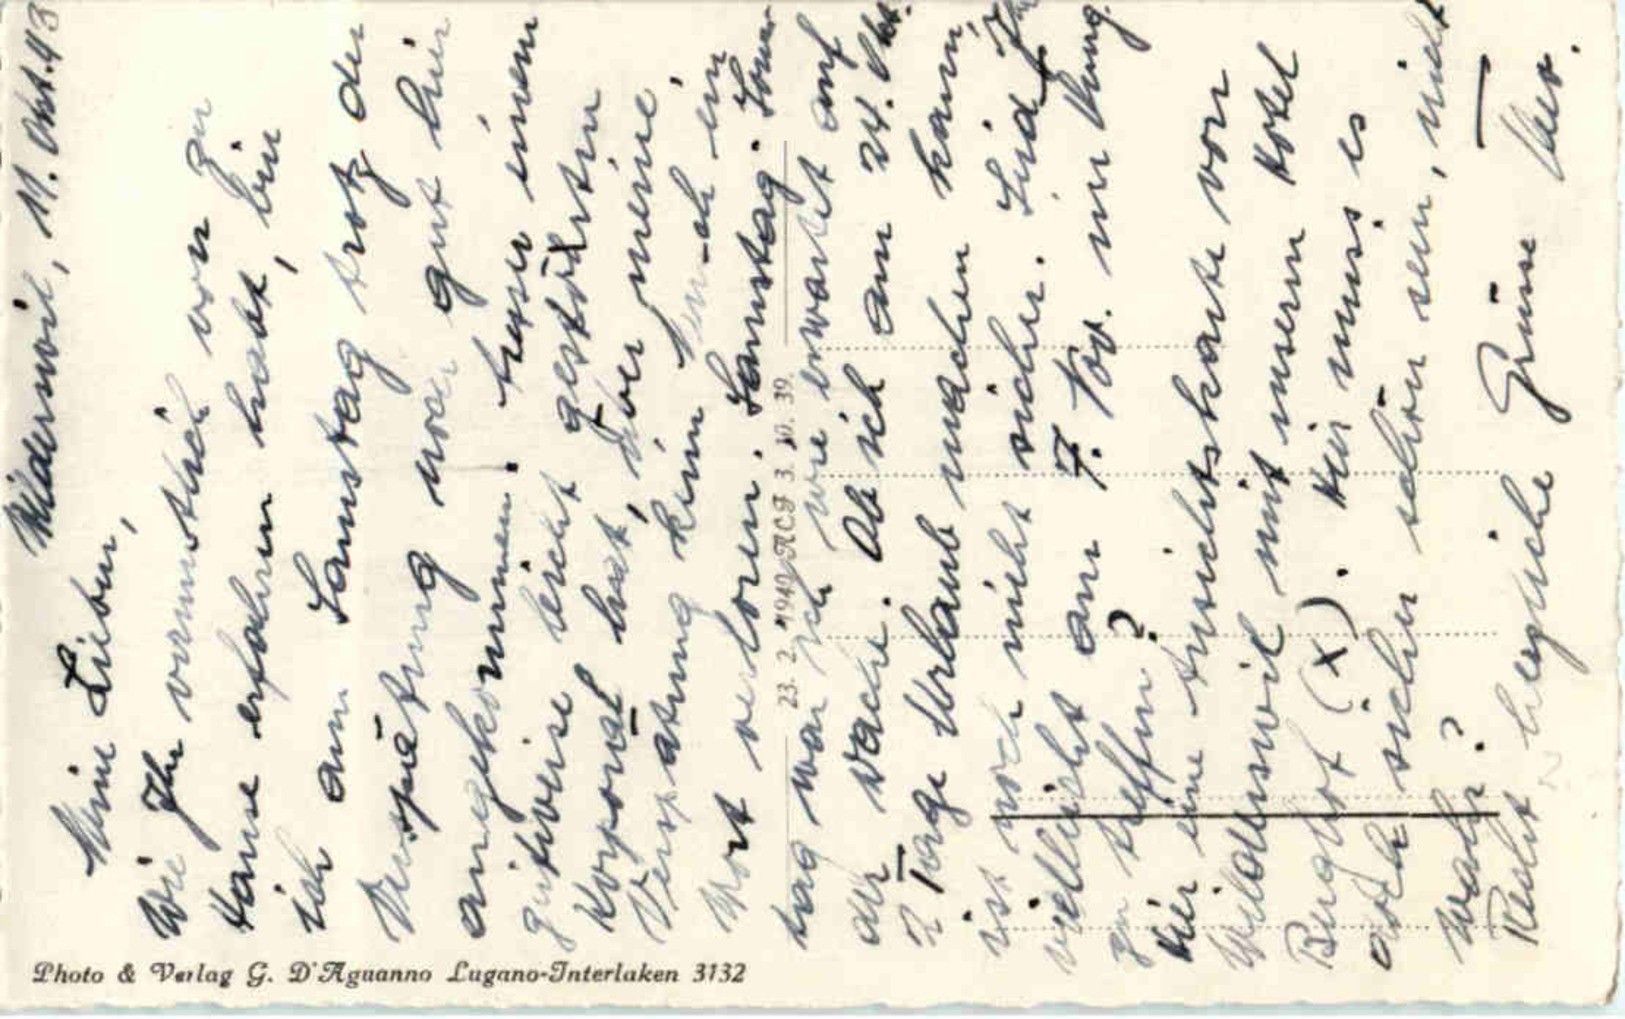 Wilderswil, 11. Okt. 43
Meine Lieben,
Wie Ihr vermutlich von zu
Hause erfahren habt, bin
ich am Samstag trotz der
Verspätung noch gut hier
angekommen. Unser einen
guitweise leicht gestörten
Korporal hat, über meine
Verspätung kein
Wort verloren. Samstag. Sonn
tag war ich wie erwartet auf
der Wache. Ob ich am 24. Okt.
2 Tage Urlaub machen kann,
ist noch nicht sicher. Seid Ihr
vielleicht am 7. Nov. in
zu treffen?
Hier eine Ansichtskarte von
Wilderswil mit unserm Hotel
Berghof (x). Hier muss es
auch sicher schön sein, nicht
wahr?
Recht herzliche Grüsse
Photo & Verlag G. D'Aguanno Lugano-Interlaken 3132
23. 2. 1940 ACF 3. 10. 39.